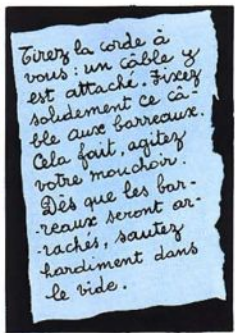 Tirez la corde à
vous : un câble y
est attaché. Fixez
solidement ce câ-
ble aux barreaux.
Cela fait, agitez
votre mouchoir.
Dès que les bar-
-reaux seront ar-
-rachés, sautez
hardiment dans
le vide.